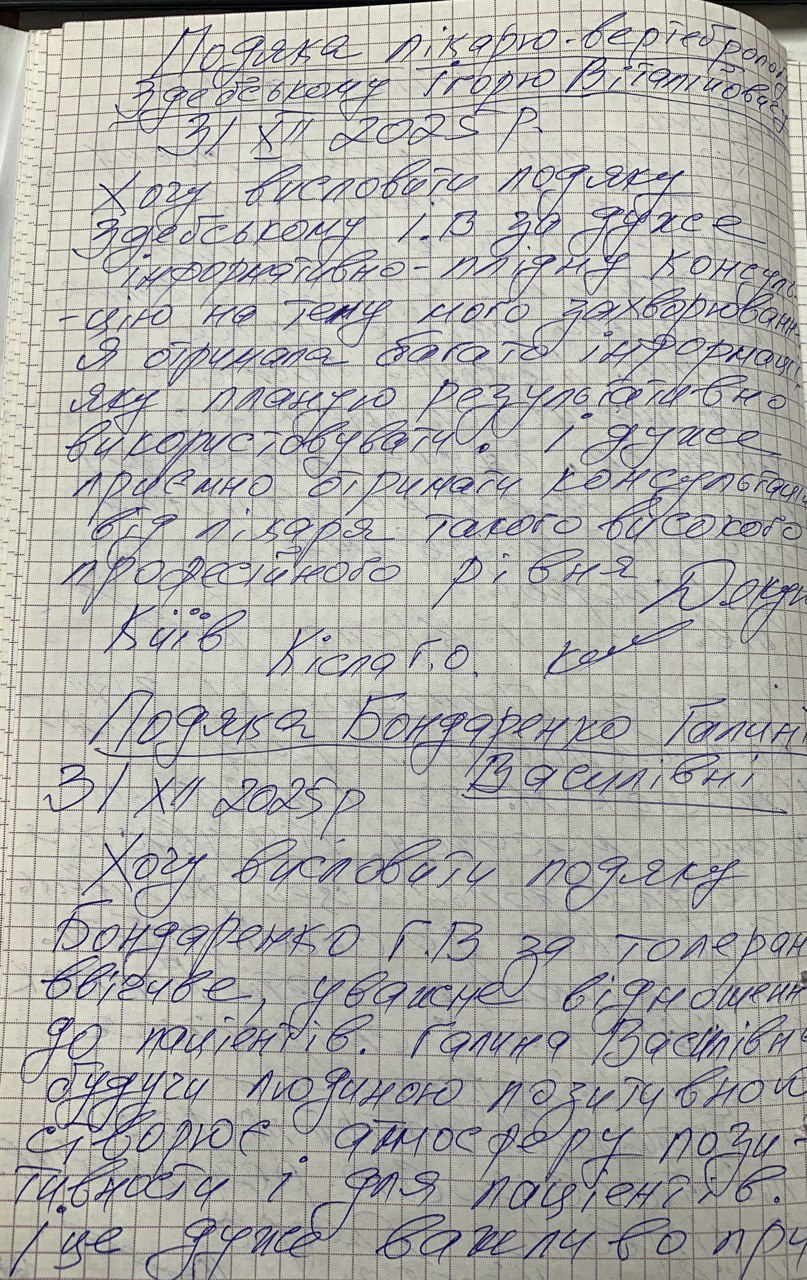 Подяка лікарю-вертебролог
Здебському Ігорю Віталійовичу
31 XII 2025 р.
Хочу висловити подяку
Здебському І.В за дуже
інформативно-плідну консуль-
-цію на тему мого захворюванн
Я отримала багато інформаці
яку планую результативно
використовувати. І дуже
приємно отримати консультаці
від лікаря такого високого
професійного рівня. Дякую
Київ Кісла Г.О.
Подяка Бондаренко Галині
Василівні
31 XII 2025р
Хочу висловити подяку
Бондаренко Г.В за толеран
ввічиве, уважне відношенн
до пацієнтів. Галина Василівна
будучи людиною позитивною
створює атмосферу пози-
тивности і для пацієнтів.
І це дуже важливо при